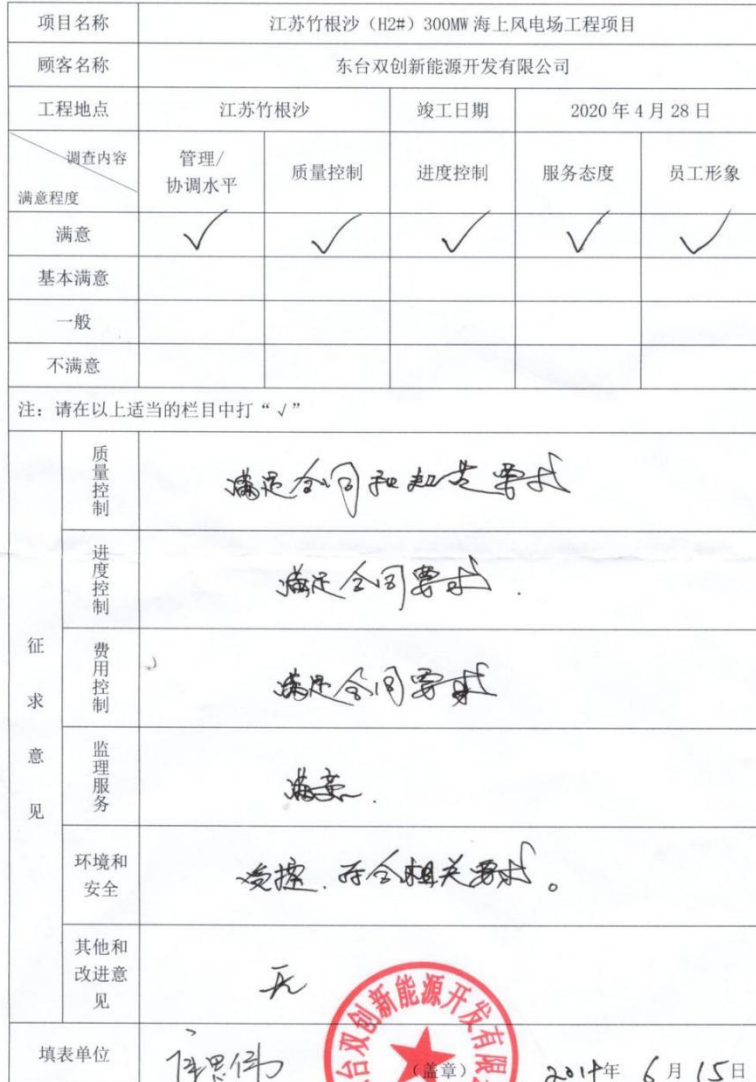 项目名称 江苏竹根沙（H2#）300MW 海上风电场工程项目
顾客名称 东台双创新能源开发有限公司
工程地点 江苏竹根沙 竣工日期 2020 年 4 月 28 日
调查内容 管理/ 质量控制 进度控制 服务态度 员工形象
满意程度 协调水平
满意 ✓ ✓ ✓ ✓ ✓
基本满意
一般
不满意
注：请在以上适当的栏目中打“√”
征求意见
质量控制 满足合同和规范要求
进度控制 满足合同要求.
费用控制 满足合同要求
监理服务 满意.
环境和
安全 受控.符合相关要求。
其他和
改进意
见 无
台双创新能源开发有限
填表单位 （盖章） 年 6 月 15 日